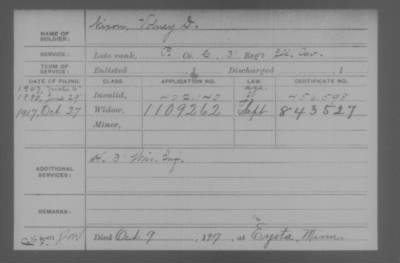 NAME OF SOLDIER: Nixon, Volney D.
SERVICE: Late rank, P Co. E, 3 Reg't Ill. Cav.
TERM OF SERVICE: Enlisted 1 Discharged 1
DATE OF FILING. CLASS. APPLICATION NO. LAW. CERTIFICATE NO.
Invalid,
1917, Oct. 27 Widow, 1109262 Sept 843527
Minor,
ADDITIONAL SERVICES: H. 3 Wis. Inf.
REMARKS:
Died Oct. 9, 1917, at Eyota, Minn.